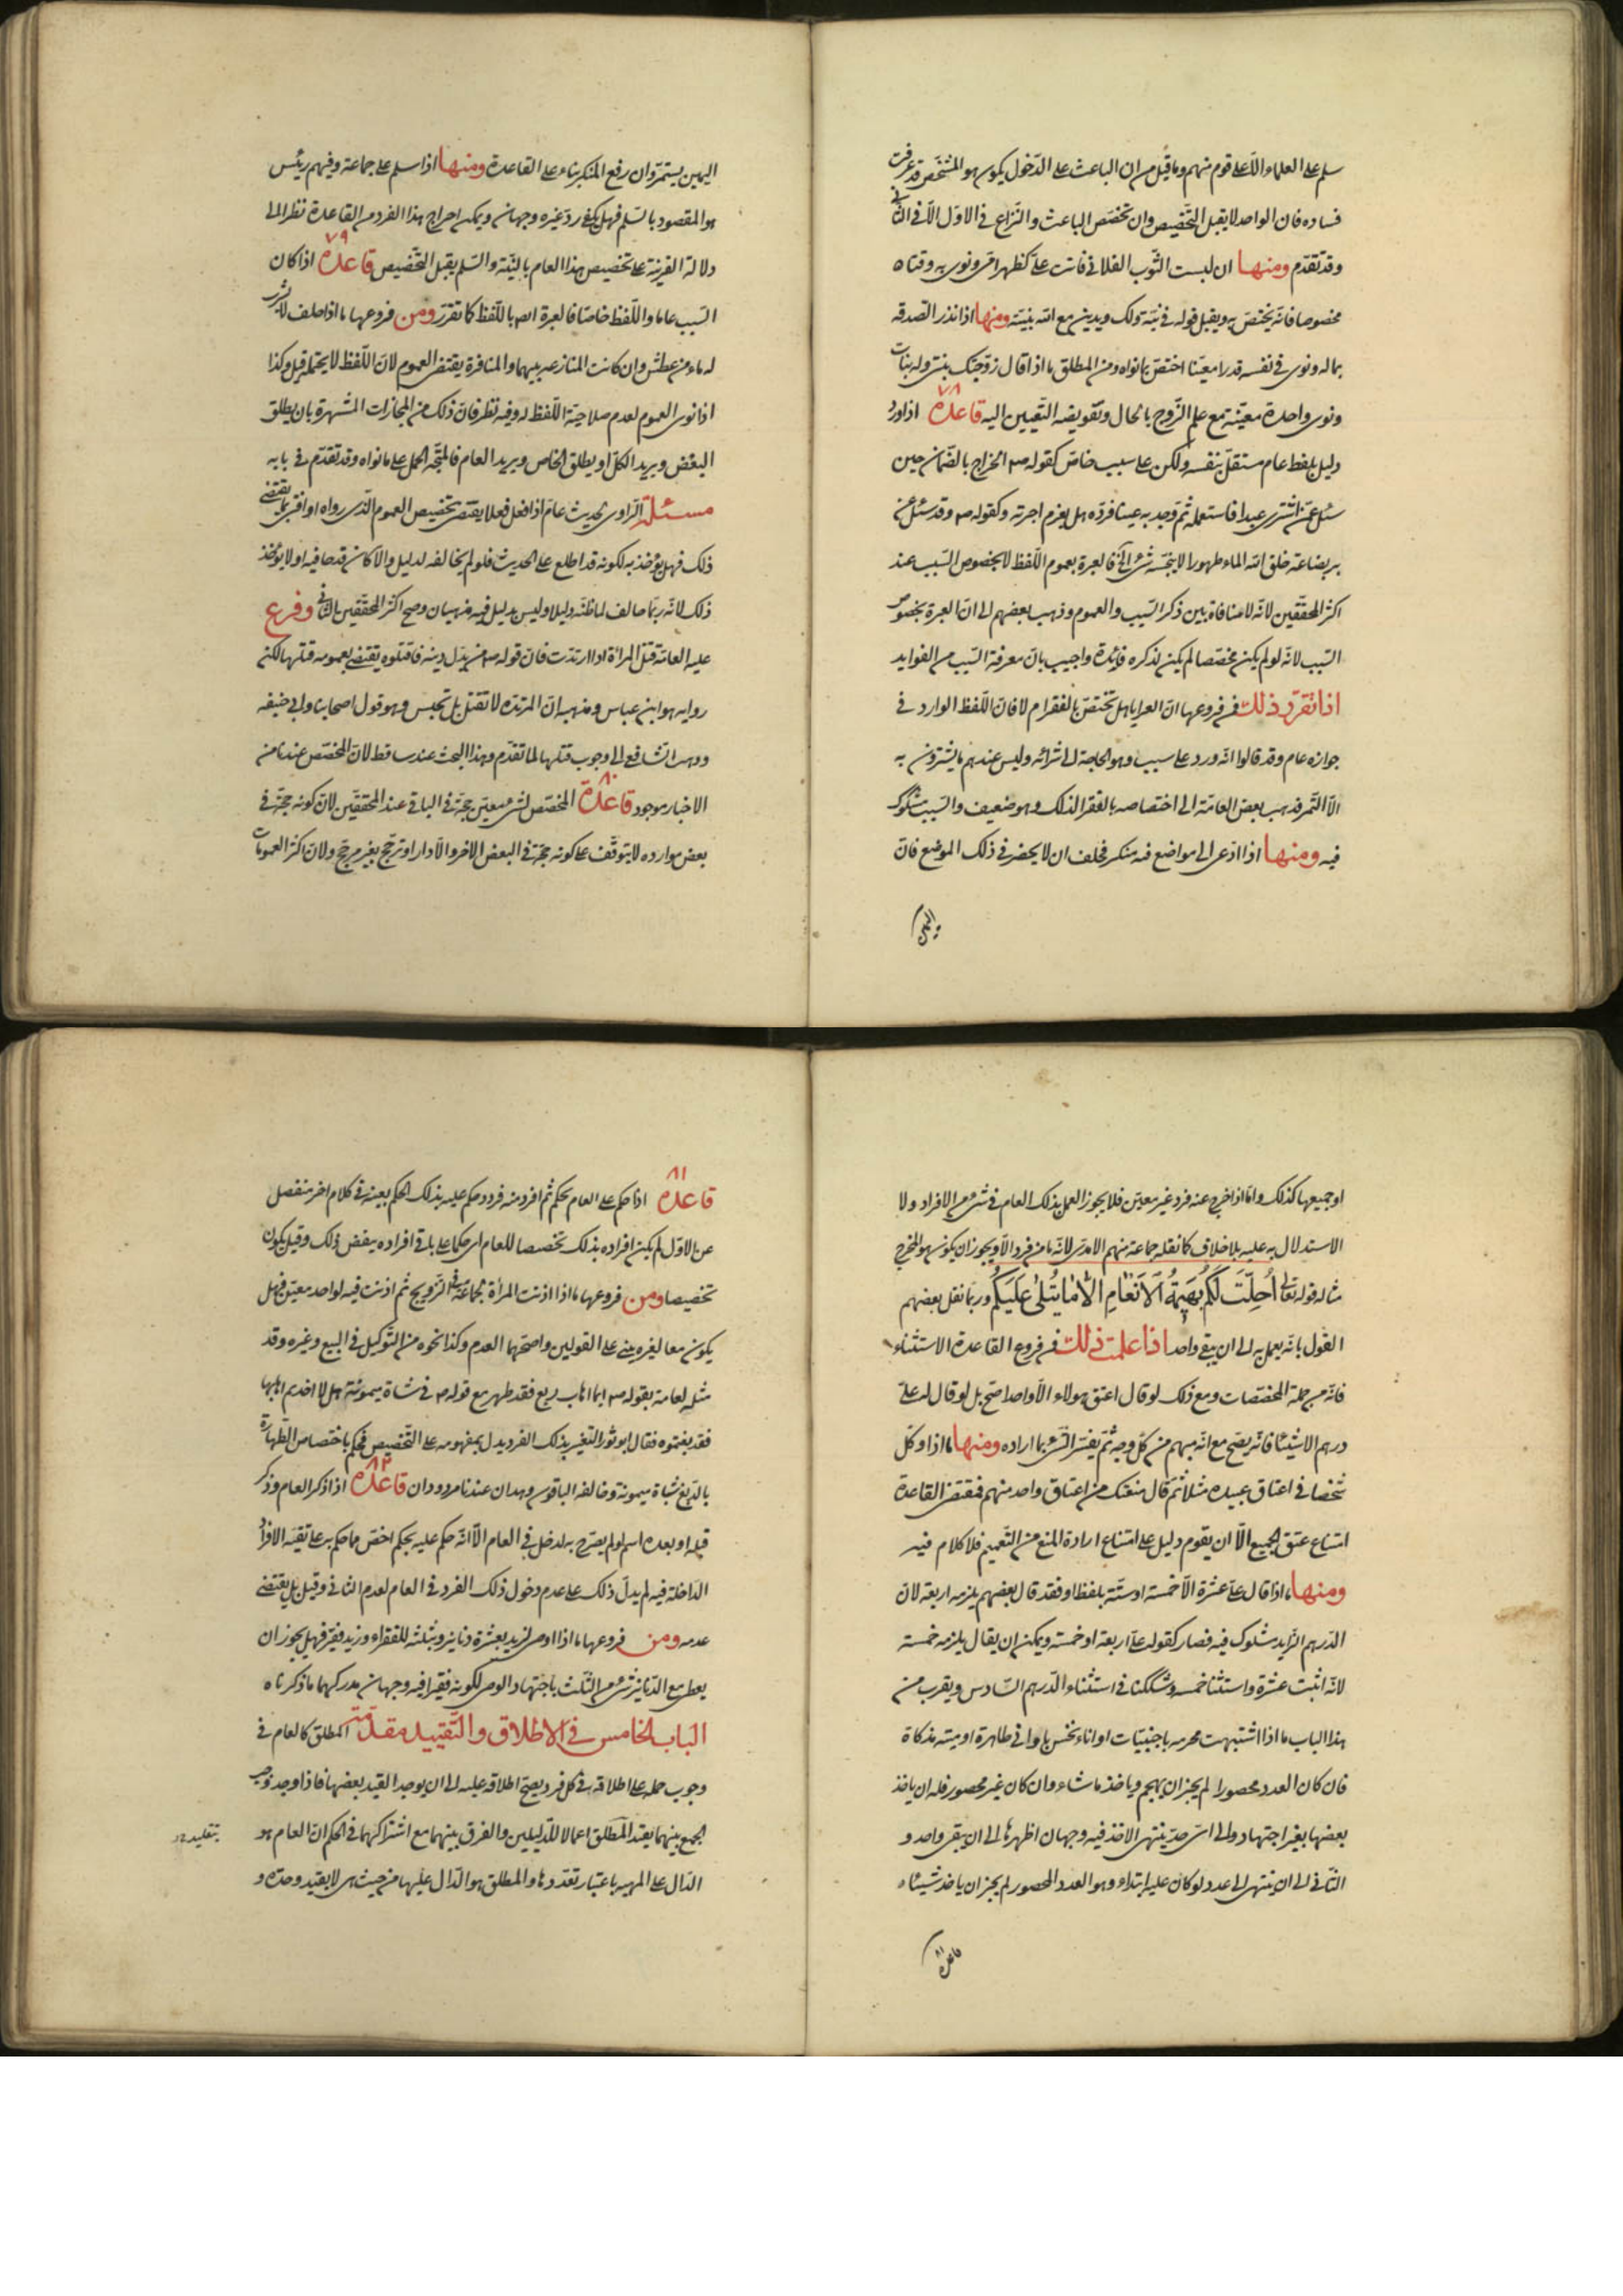 سلم على العلماء الا على قوم منهم وما قيل من ان الباعث على الدخول يكون هو المشخص قد عرفت
فساده فان الواحد لا يقبل التخصيص وان تخصص الباعث والنزاع في الاول لا في الثاني
وقد تقدم ومنها ان لبست الثوب الفلاني فانت علي كظهر امي ونوى به وقتا ه
مخصوصا فانه يختص به ويقبل قوله في نيته ذلك ويدين مع الله بنيته ومنها اذا نذر الصدقه
بماله ونوى في نفسه قدرا معينا اختص بما نواه ومن المطلق ما اذا قال زوجتك بنتي وله بنات
ونوى واحدة معينة مع علم الزوج بالحال وتفويضه التعيين اليه قاعدة ٧٨ اذا ورد
دليل بلفظ عام مستقل بنفسه ولكن على سبب خاص كقوله ص الخراج بالضمان حين
سئل عمن اشترى عبدا فاستعمله ثم وجد به عيبا فرده هل يغرم اجرته وكقوله ص وقد سئل عن
بئر بضاعة خلق الله الماء طهورا لا ينجسه شئ الخ فالعبرة بعموم اللفظ لا بخصوص السبب عند
اكثر المحققين لانه لا منافاة بين ذكر السبب والعموم وذهب بعضهم الى ان العبرة بخصوص
السبب لانه لو لم يكن مخصصا لم يكن لذكره فائدة واجيب بان معرفة السبب من الفوايد
اذا تقرر ذلك فمن فروعها ان العرايا هل تختص بالفقراء ام لا فان اللفظ الوارد في
جوازه عام وقد قالوا انه ورد على سبب وهو الحاجة الى شرائه وليس عندهم ما يشترون به
الا التمر فذهب بعض العامة الى اختصاصه بالفقراء لذلك وهو ضعيف والسبب مشكوك
فيه ومنها اذا ادعى الى مواضع فيه منكر فحلف ان لا يحضر في ذلك الموضع فان
اليمين يستمر وان رفع المنكر بناء على القاعدة ومنها اذا سلم على جماعة وفيهم رئيس
هو المقصود بالسلم فهل يكفي رد غيره وجهان ويمكن اخراج هذا الفرد من القاعدة نظرا الى
دلالة القرينة على تخصيص هذا العام بالنية والسلم يقبل التخصيص قاعدة ٧٩ اذا كان
السبب عاما واللفظ خاصا فالعبرة ايضا باللفظ كما تقرر ومن فروعها ما اذا حلف لا يشرب
له ماء من عطش وان كانت المنازعه بينهما والمنافرة يقتضي العموم لان اللفظ لا يحتمله قيل وكذا
اذا نوى العموم لعدم صلاحية اللفظ له وفيه نظر فان ذلك من المجازات المشهرة بان يطلق
البعض ويريد الكل او يطلق الخاص ويريد العام فالمتجه الحمل على ما نواه وقد تقدم في بابه
مسئلة الراوي لحديث عام اذا فعل فعلا يقتضي تخصيص العموم الذي رواه او افتى بما يقتضي
ذلك فهل يؤخذ به لكونه قد اطلع على الحديث فلو لم يخالفه لدليل والا كان قدحا فيه او لا يؤخذ
ذلك لانه ربما خالف لما ظنه دليلا وليس بدليل فيه مذهبان وصحح اكثر المحققين الثاني وفرع
عليه العامة قتل المراة اذا ارتدت فان قوله ص من بدل دينه فاقتلوه يقتضي بعمومه قتلها لكن
راويه هو ابن عباس ومذهبه ان المرتده لا تقتل بل تحبس وهو قول اصحابنا وابي حنيفه
وذهب الشافعي الى وجوب قتلها لما تقدم وهذا البحث عند ساقط لان المخصص عندنا من
الاخبار موجود قاعدة ٨٠ المخصص لشئ معين حجة في الباقي عند المحققين لان كونه حجة في
بعض موارده لا يتوقف على كونه حجة في البعض الاخر والا دار او ترجح بغير مرجح ولان اكثر العمومات
او جميعها كذلك واما اذا خرج عنه فرد غير معين فلا يجوز العمل بذلك العام في شئ من الافراد ولا
الاستدلال به عليه بلا خلاف كما نقله جماعة منهم الامدي لانه ما من فرد الا ويجوز ان يكون هو المخرج
مثاله قوله تعالى أُحِلَّتْ لَكُمْ بَهِيمَةُ الْأَنْعَامِ إِلَّا مَا يُتْلَى عَلَيْكُمْ وربما نقل بعضهم
القول بانه يعمل به الى ان يبقى واحد اذا علمت ذلك فمن فروع القاعدة الاستثناء
فانه من جملة المخصصات ومع ذلك لو قال اعتق هولاء الا واحدا صح بل لو قال له علي
درهم الا شيئا فانه يصح مع انه مبهم من كل وجه ثم يفسر الشئ بما اراده ومنها ما اذا وكل
شخصا في اعتاق عبيده مثلا ثم قال منعتك من اعتاق واحد منهم فمقتضى القاعدة
امتناع عتق الجميع الا ان يقوم دليل على امتناع ارادة المنع من التعميم فلا كلام فيه
ومنها ما اذا قال علي عشرة الا خمسة او ستة بلفظ او فقد قال بعضهم يلزمه اربعة لان
الدرهم الزايد مشكوك فيه فصار كقوله علي اربعة او خمسة ويمكن ان يقال يلزمه خمسة
لانه اثبت عشرة واستثنا خمسه وشككنا في استثناء الدرهم السادس ويقرب من
هذا الباب ما اذا اشتبهت محرمه باجنبيات او اناء نجس باواني طاهرة او ميتة مذكاة
فان كان العدد محصورا لم يجز ان يهجم وياخذ ما شاء وان كان غير محصور فله ان ياخذ
بعضها بغير اجتهاد والى اي حد ينتهي الاخذ فيه وجهان اظهرها الى ان يبقى واحد و
الثاني الى ان ينتهي الى عدد لو كان عليه ابتداء وهو العدد المحصور لم يجز ان ياخذ شيئا ه
قاعدة ٨١ اذا حكم على العام بحكم ثم افرد منه فرد وحكم عليه بذلك الحكم بعينه في كلام اخر منفصل
عن الاول لم يكن افراده بذلك تخصيصا للعام اي حكما على باقي افراده بنقيض ذلك وقيل يكون
تخصيصا ومن فروعها ما اذا اذنت المرأة لجماعة في التزويج ثم اذنت فيه لواحد معين فهل
يكون منعا لغيره يبنى على القولين واصحهما العدم وكذا نحوه من التوكيل في البيع وغيره وقد
مثله العامة بقوله ص ايما اهاب دبغ فقد طهر مع قوله ص في شاة ميمونة هلا اخذتم اهابها
فدبغتموه فقال ابو ثور التعبير بذلك الفرد يدل بمفهومه على التخصيص فحكم باختصاص الطهارة
بالدبغ بشاة ميمونة وخالفه الباقون وهذان عندنا مردودان قاعدة ٨٢ اذا ذكر العام وذكر
قبله او بعده اسم لو لم يصرح به لدخل في العام الا انه حكم عليه بحكم اخص مما حكم به على بقية الافراد
الداخلة فيه لم يدل ذلك على عدم دخول ذلك الفرد في العام لعدم التنافي وقيل بل يقتضي
عدمه ومن فروعها ما اذا اوصى لزيد بعشرة دنانير وبثلثه للفقراء وزيد فقير فهل يجوز ان
يعطى مع الدنانير شئ من الثلث باجتهاد الوصي لكونه فقيرا فيه وجهان مدركهما ما ذكرناه
الباب الخامس في الاطلاق والتقييد مقدمة المطلق كالعام في
وجوب حمله على اطلاقه في كل فرد يصح اطلاقه عليه الى ان يوجد القيد بعضها فاذا وجد وجب
الجمع بينهما بقيد المطلق اعمالا للدليلين والفرق بينهما مع اشتراكهما في الحكم ان العام هو
الدال على المهيه باعتبار تعددها والمطلق هو الدال عليها من حيث هي لا بقيد وحدة و